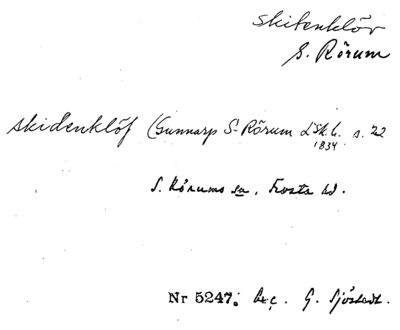 Skitenklöv
S. Rörum
Skidenklöf (Gunnarp S. Rörum LSk. 6. s. 22
1834
S. Rörums sn, Frosta hd.
Nr 5247. Acc. G. Sjöstedt.